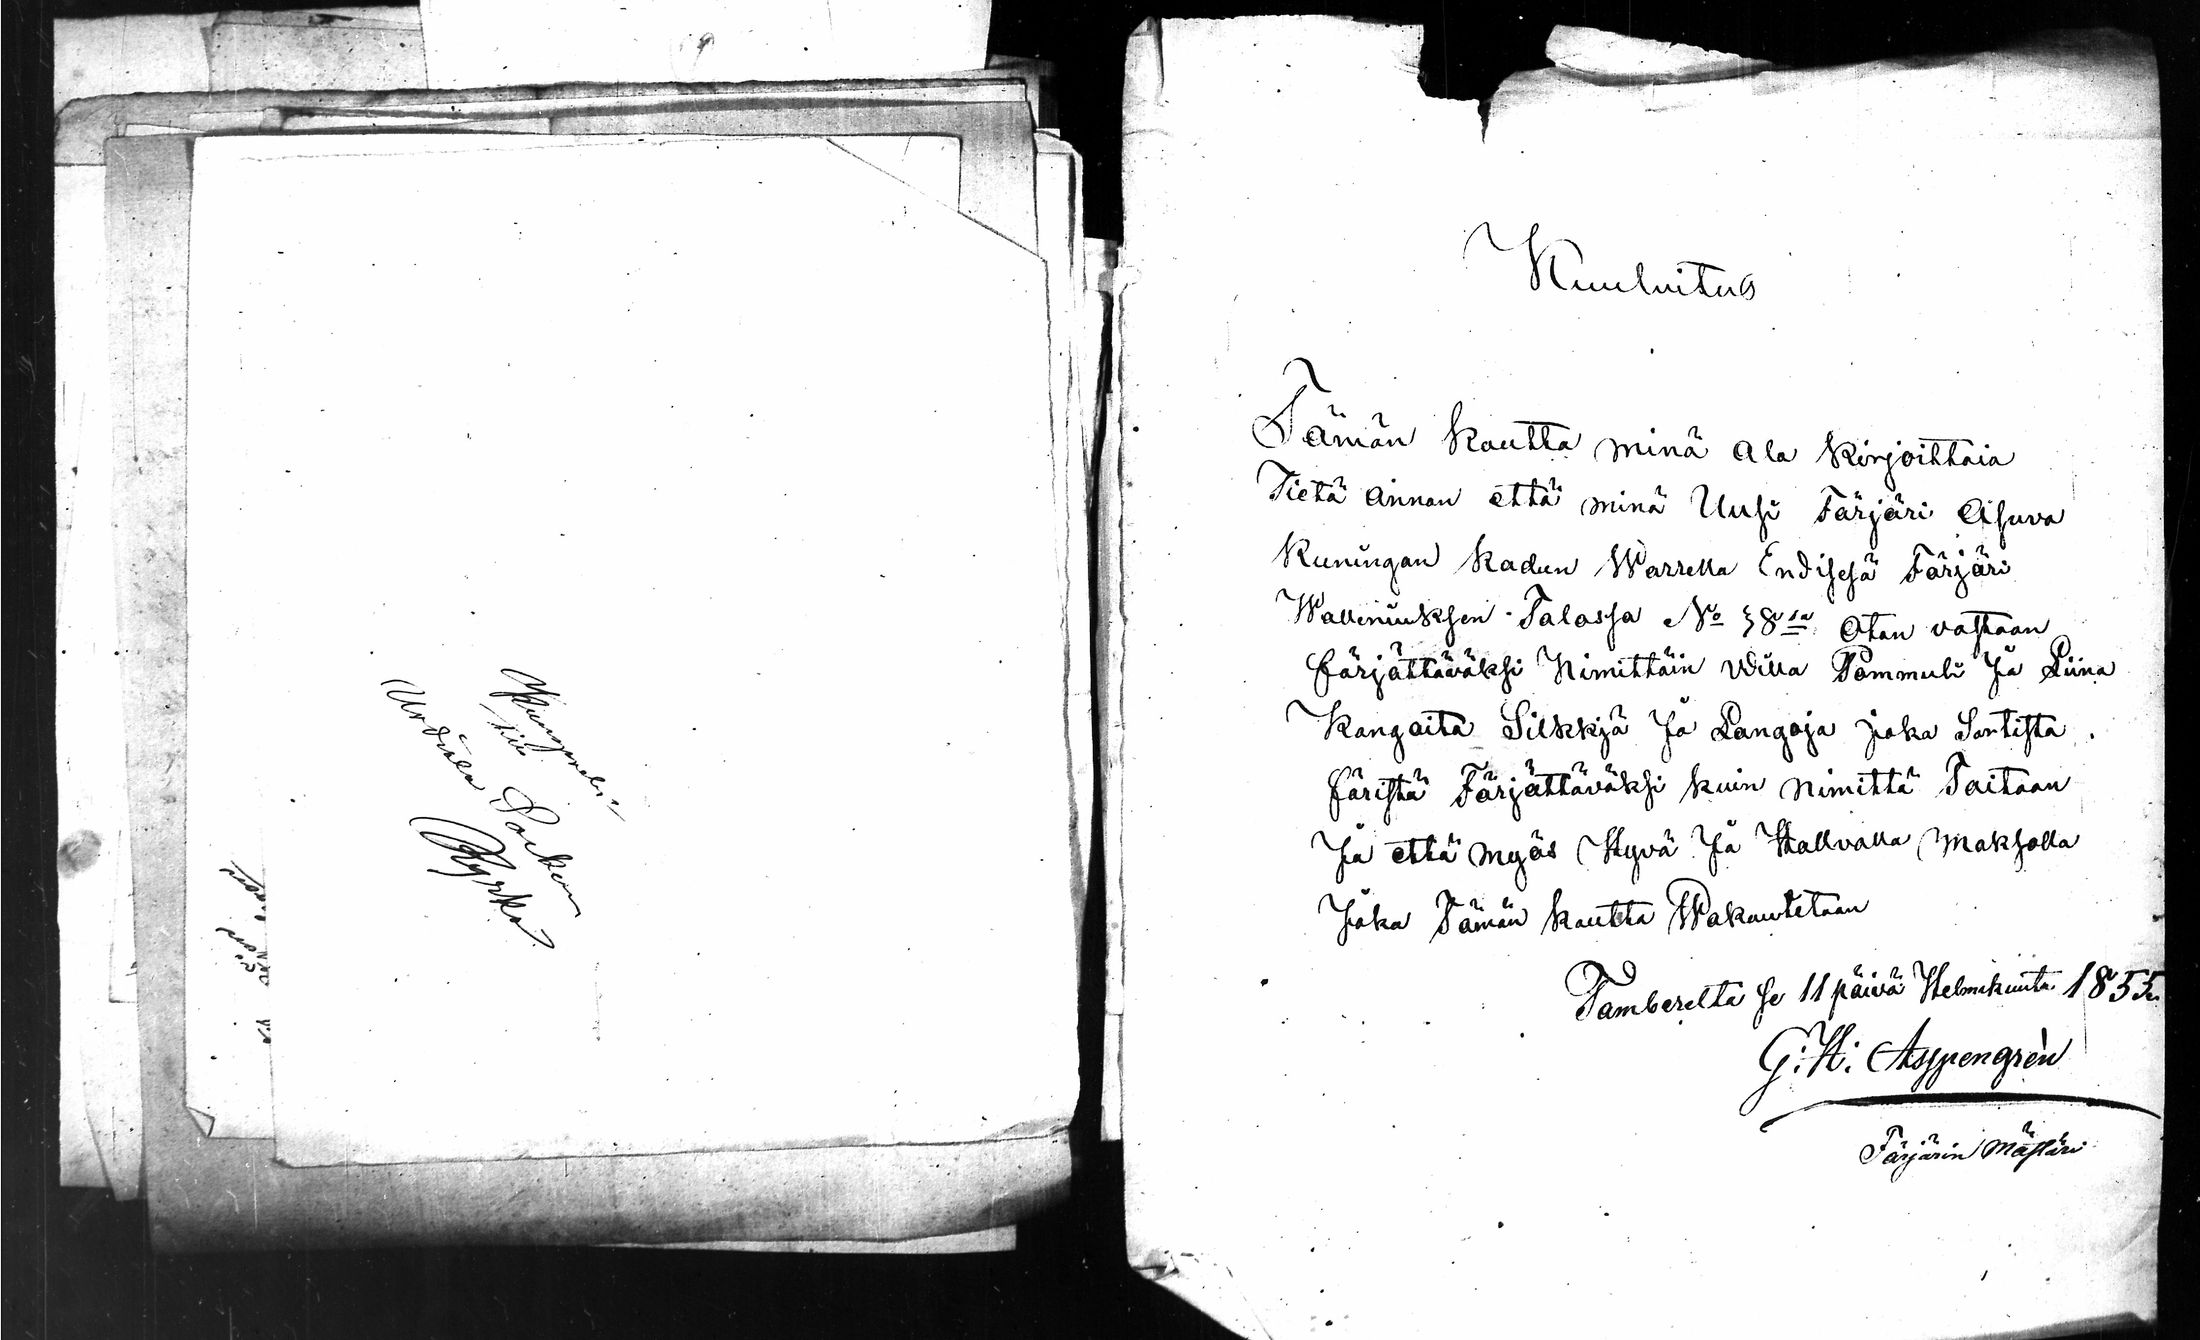 Kungörelse
till
Urdiala Socken
Kyrka
Kuuluitus
Tämän kautta minä ala kirjoittaia
Tietä annan että minä Uusi Färjäri Asuva
Kuningan kadun Warrella Endisesä Färjäri
Walleniuksen Talossa No 38 Otan vastaan
färjättäväksi Nimittäin villa Pommuli Ja Liina
Kangaita Silkkjä Ja Langoja joka Sortista
färistä Färjättäväksi kuin nimittä Taitaan
Ja että myös Hyvä Ja Hallvalla Maksolla
Joka Tämän kautta Wakautetaan
Tamberelta se 11 päivä Helmikuuta 1855
G: H: Aspengrèn
Färjärin Mästäri